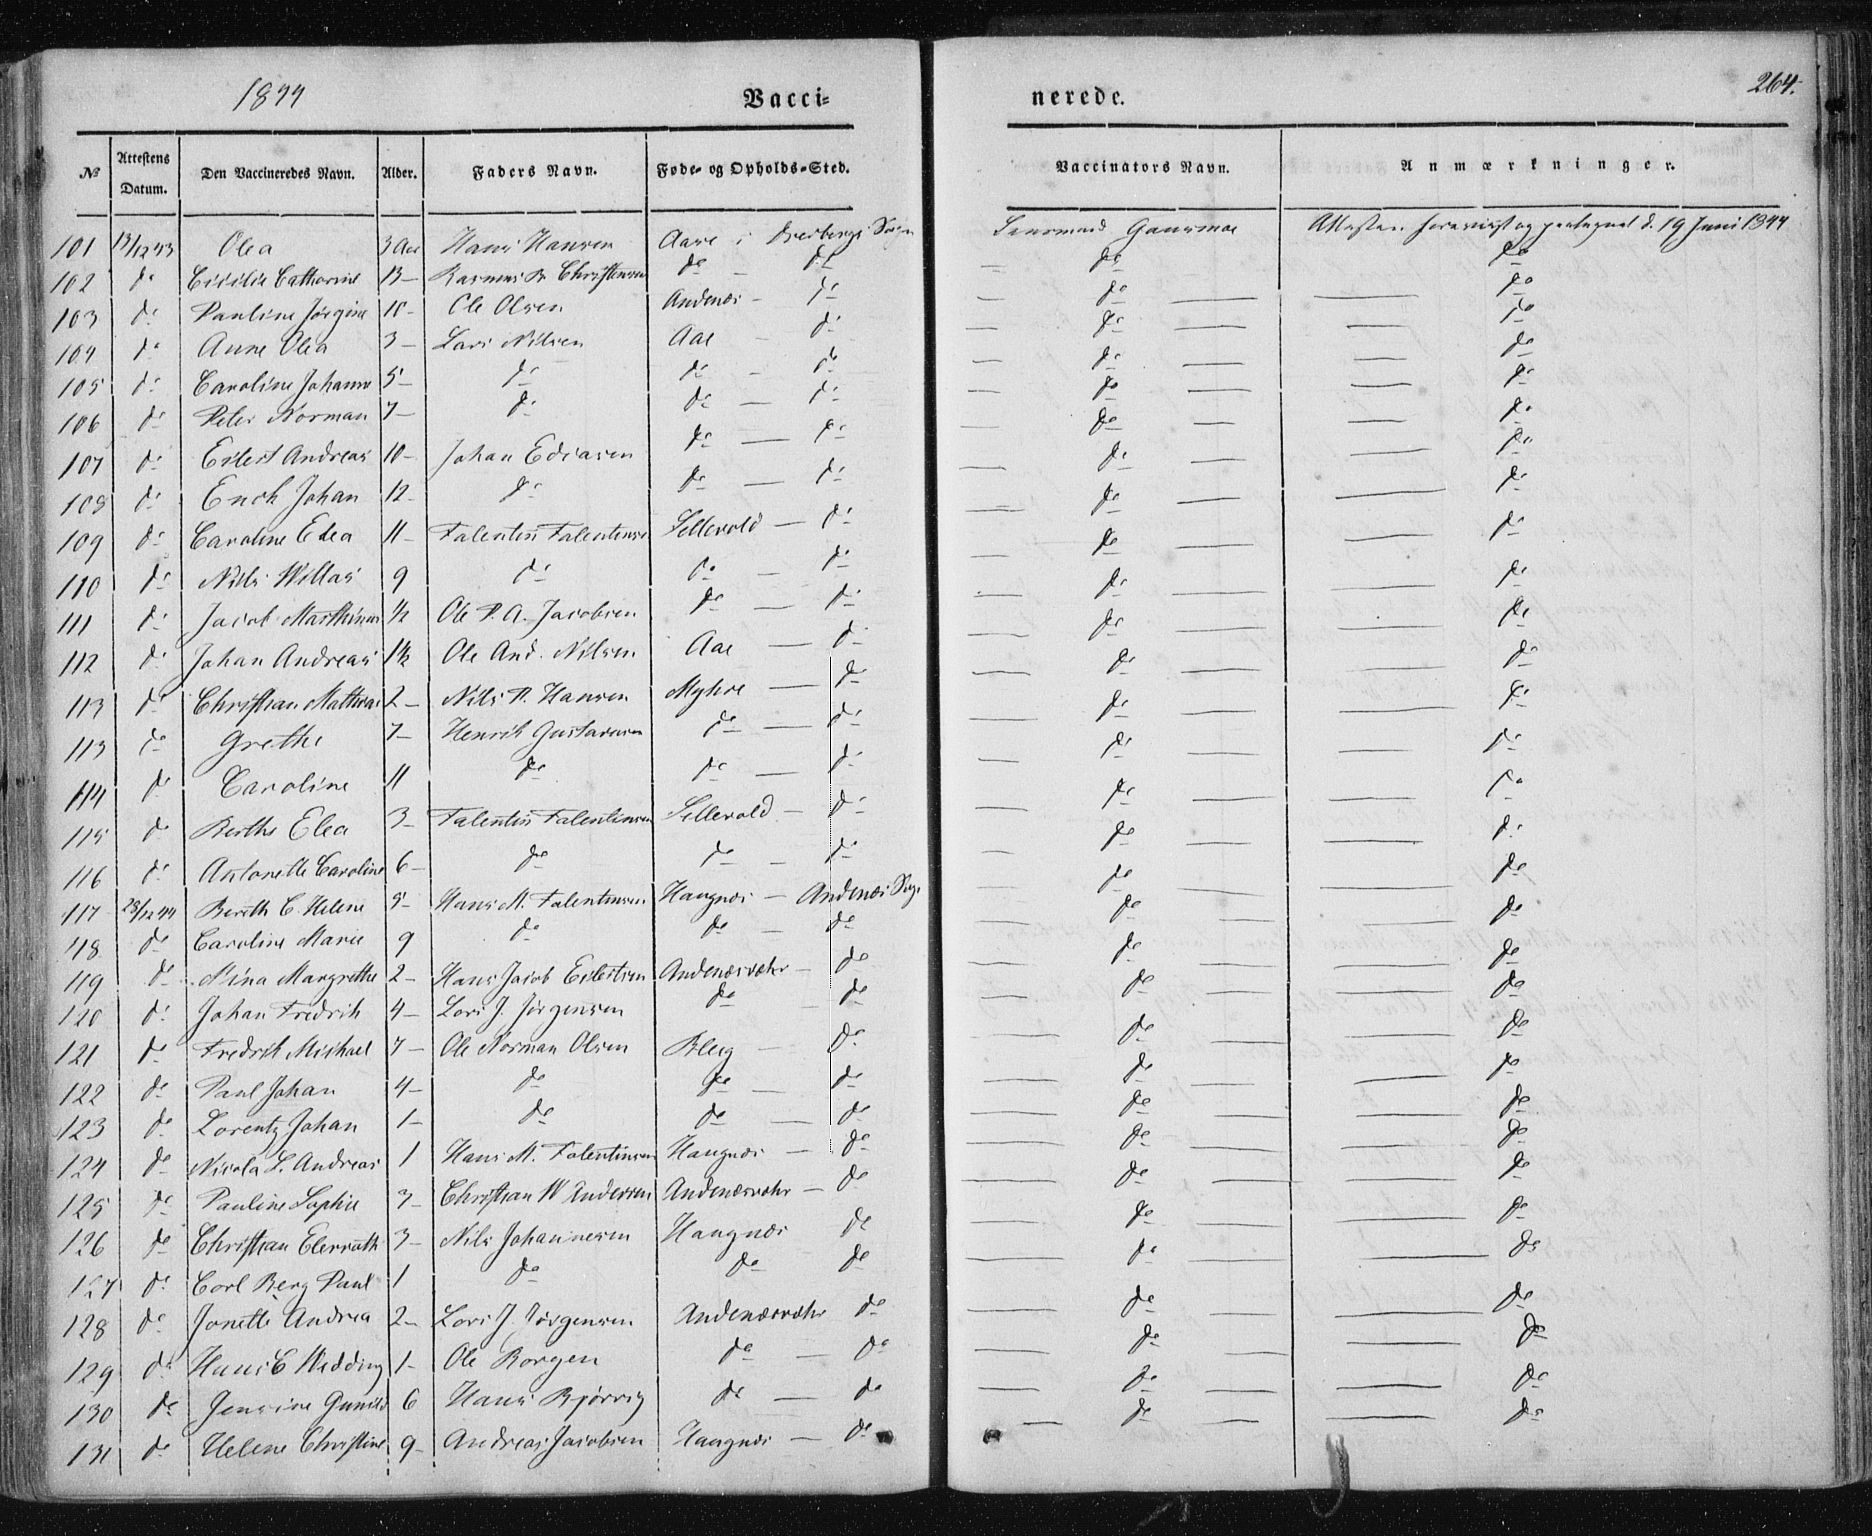 1844 Vacci- nerede. 264.
№ Attestens Datum. Den Vaccineredes Navn. Alder. Faders Navn. Føde- og Opholds-Sted. Vaccinators Navn. Anmærkninger.
101 13/12 43 Olea 3 Aar Hans Hansen Aase i Sogn Attesten foreviist og paategnet d. 19 Juni 1844
102 do Cicilie Catharine 13 - Rasmus Christensen do - do - do do
103 do Pauline Jørgine 10 - Ole Olsen Andenæs - do - do - - do
104 do Anne Olea 3 - Lars Nilsen Aae - do - do - - do
105 do Caroline Johanne 5 - do do - do - do - - do
106 do Peter Norman 7 - do do - do - do - - do
107 do Eilert Andreas 10 - Johan Ediasen do - do - do - - do
108 do Johan 12 - do do - do - do - - do
109 do Caroline Elea 11 - Falentin Falentinsen Sellevold - do - do - - do
110 do Nils Willas 9 do do - do - do - - do
111 do Jacob Marthinus 1/2 Ole P. A. Jacobsen do - do - do - - do
112 do Johan Andreas 1 1/2 Ole And. Nilsen Aae - do - do - - do
113 do Christian Mathias 2 - Nils P. Hansen Myhre - do - do - - do
113 do Grethe 7 - Henrik Gustavsen do - do - do - - do
114 do Caroline 11 do do - do - do - - do
115 do Berthe Elea 3 - Falentin Falentinsen Sellevold - do - do - - do
116 do Antonette Caroline 6 - do do - do - do - - do
117 28/12 44 Bereth C. Helene 5 - Hans M. Falentinsen Haugnæs - Andenæs Sogn - do - - do
118 do Caroline Marie 9 do do - do - do - - do
119 do Nina Margrethe 2 - Hans Jacob Eilertsen Andenæsvæhr - do - do - - do
120 do Johan Fredrik 4 - Lars J. Jørgensen do do - do - - do
121 do Fredrik Michael 7 - Ole Norman Olsen Bleig - do - do - - do
122 do Paul Johan 4 - do do - do - do - - do
123 do Lorentz Johan 1 - do do - do - do - - do
124 do Nicola L. Andreas 1 Hans M. Falentinsen Haugnæs - do - do - - do
125 do Pauline Sophie 3 - Christian W Andersen Andenæsvæhr - do - do - - do
126 do Christian 3 - Nils Johannesen Haugnæs do - do - - do
127 do Carl Berg Paul 1 do do do - do - - do
128 do Jonette Andrea 2 - Lars J. Jørgensen Andenæsvæhr do - do - - do
129 do Hans C Widding 1 - Ole Borgen do - do - do - - do
130 do Jensine Gunild 6 Hans Bjørvig do - do - do - - do
131 do Helene Christine 9 - Andreas Jacobsen Haugnæs - do - do - - do